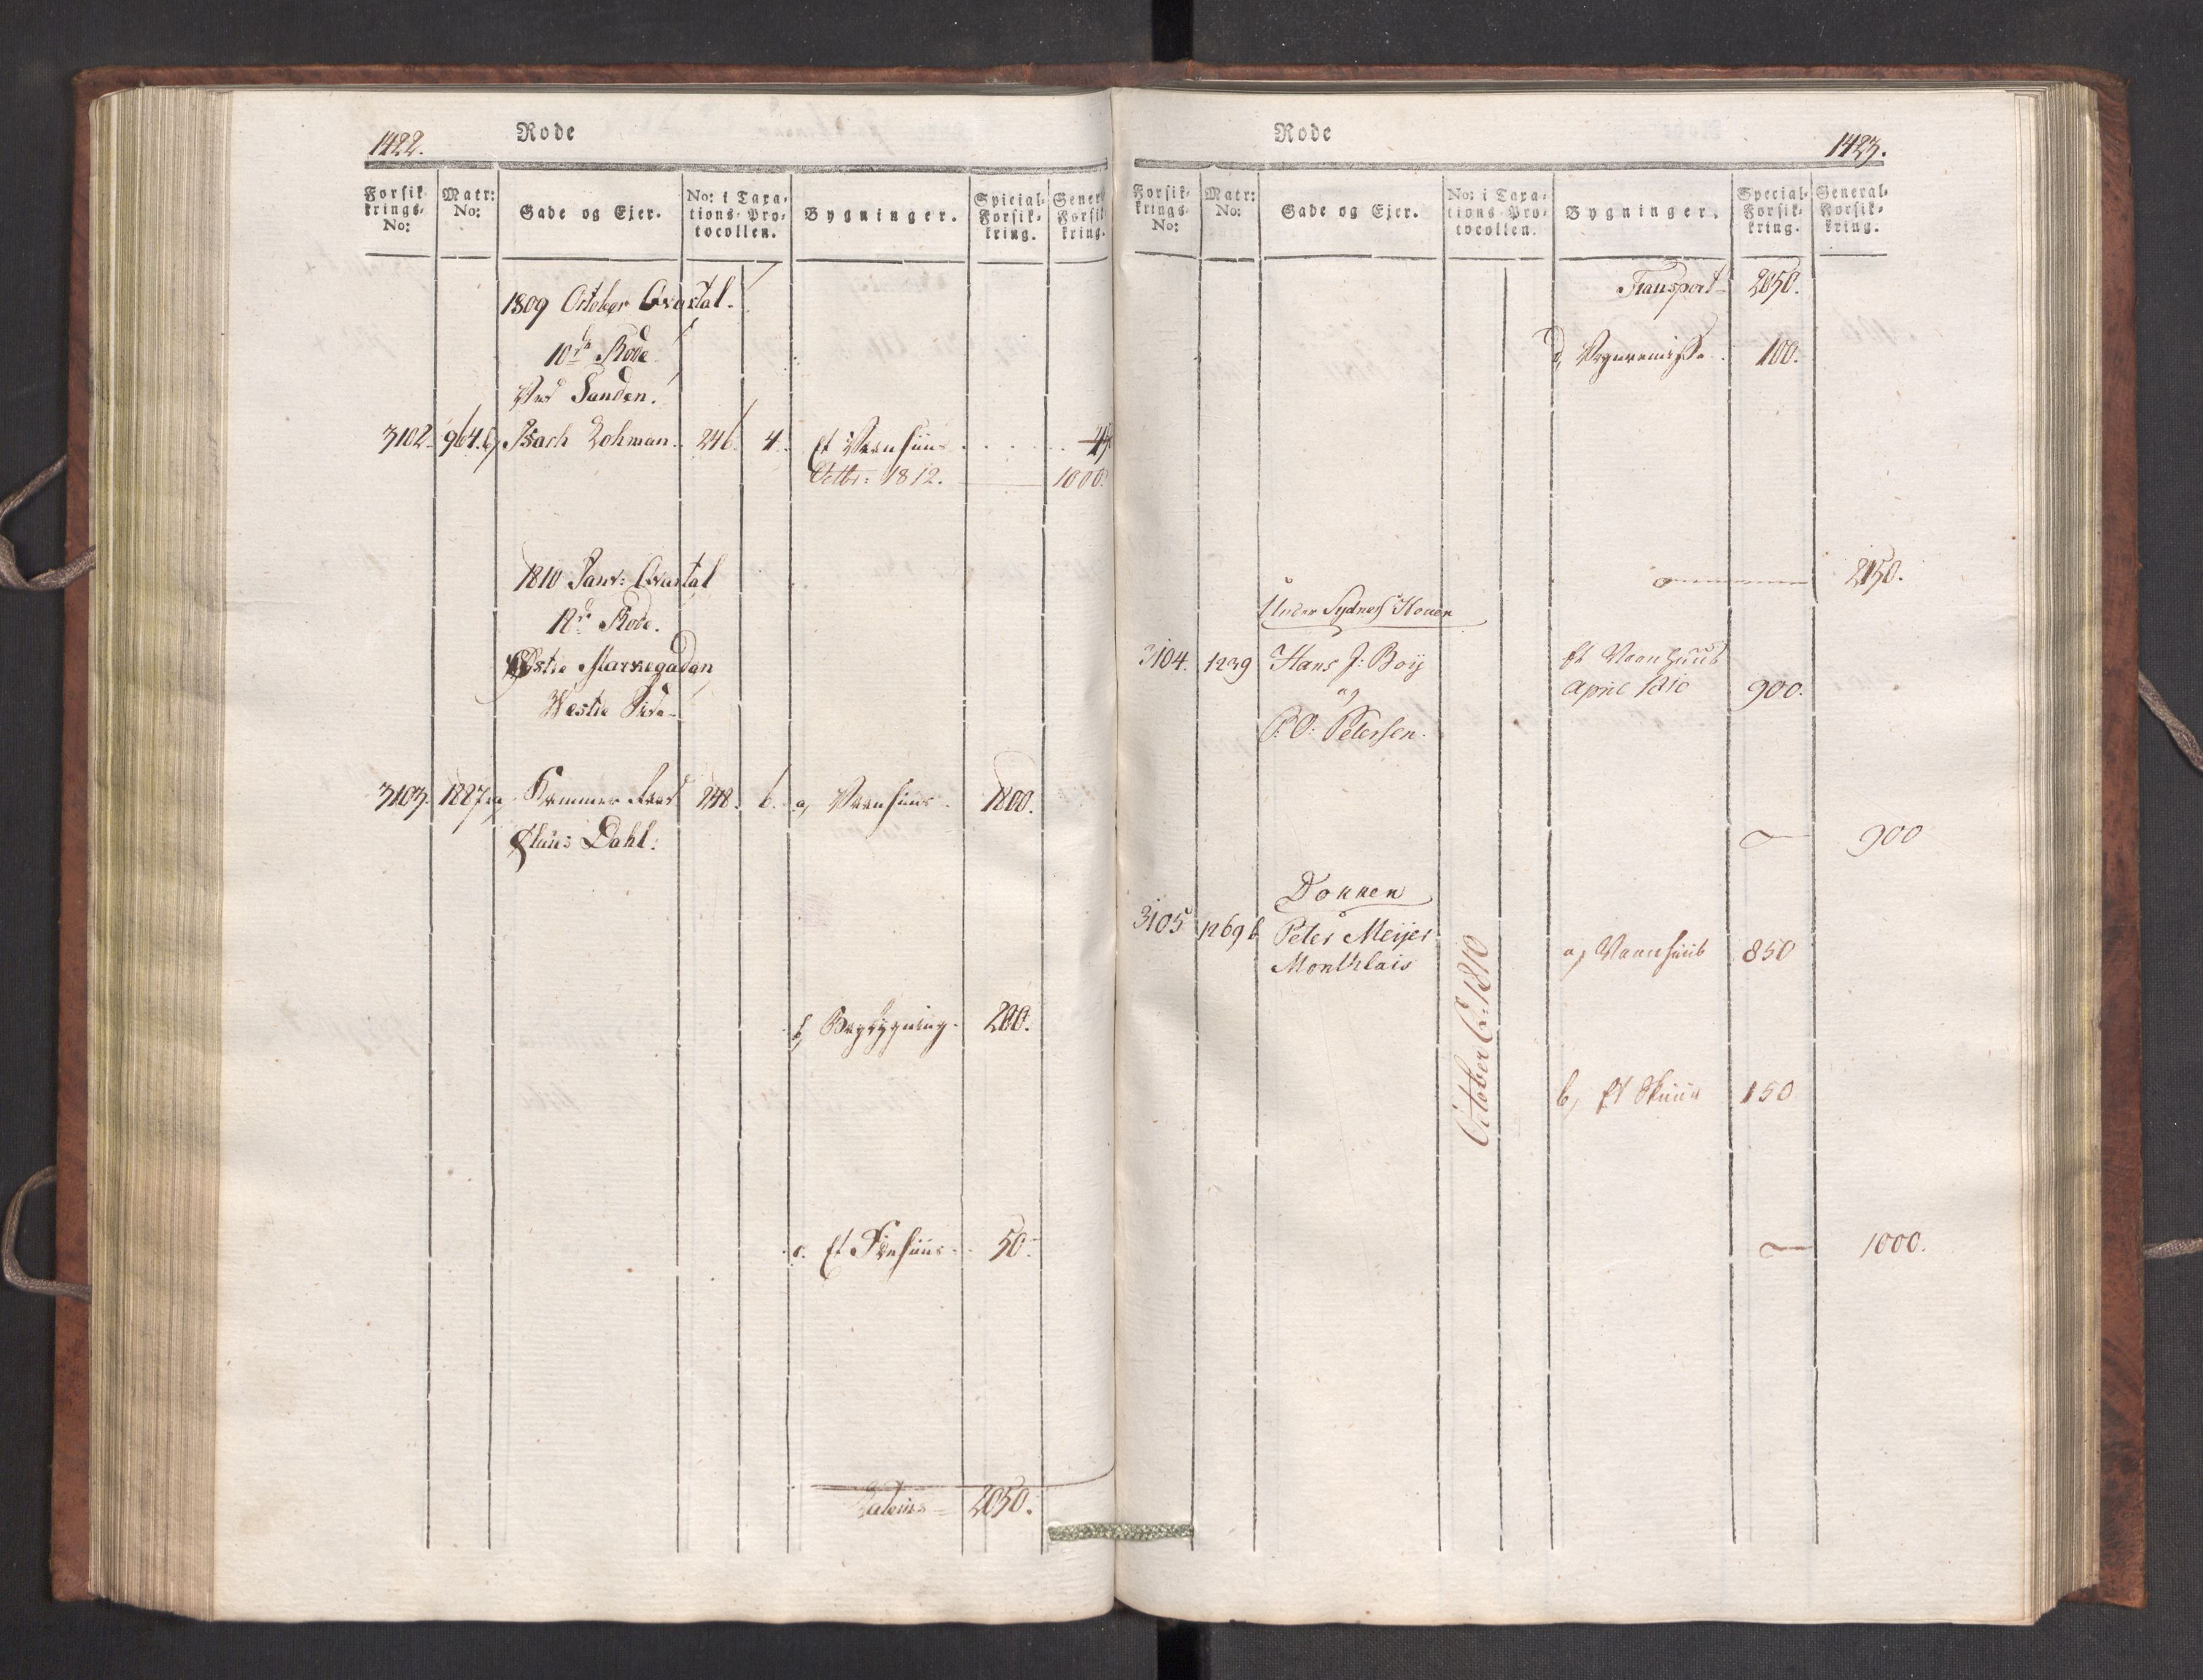 1422.
Rode
Forsik-
krings-
No:
Matr:
No:
Gade og Ejer.
No: i Taxa-
tions-Pro-
tocollen.
Bygninger.
Spicial-
Forsik-
kring.
Gener
Forsik
kring.
1809 October Qvartal.
10de Rode
Ved Sanden.
3102. 964.b, Isach Lohman. 246. 4. Et Vaanhuus
Octbr: 1812. 1000.
1810 Janr: Qvartal
12te Rode.
Østre Markegaden
Westre Side
3103. 1227 Kammer Raad 248. 6. a, Vaanhuus. 1800.
Claus Dahl.
b, Bagbygning. 200.
c. Et Ildhuus 50.
Latens 2050.
Rode
1423.
Forsik-
krings-
No:
Matr:
No:
Gade og Ejer.
No: i Taxa-
tions-Pro-
tocollen.
Bygninger.
Special-
Forsik-
kring.
General-
Forsik-
kring.
Transport 2050.
d, 100.
2150.
Under Sydness Houen
3104. 1239 Hans J: Boij Et Vaanhuus
og April 1810 900.
P. O: Petersen.
900
Dokken
3105 1269 b Peter Meijer a, Vaanhuus 850
Monthlais
October C: 1810
b, Et Skuur 150
1000.